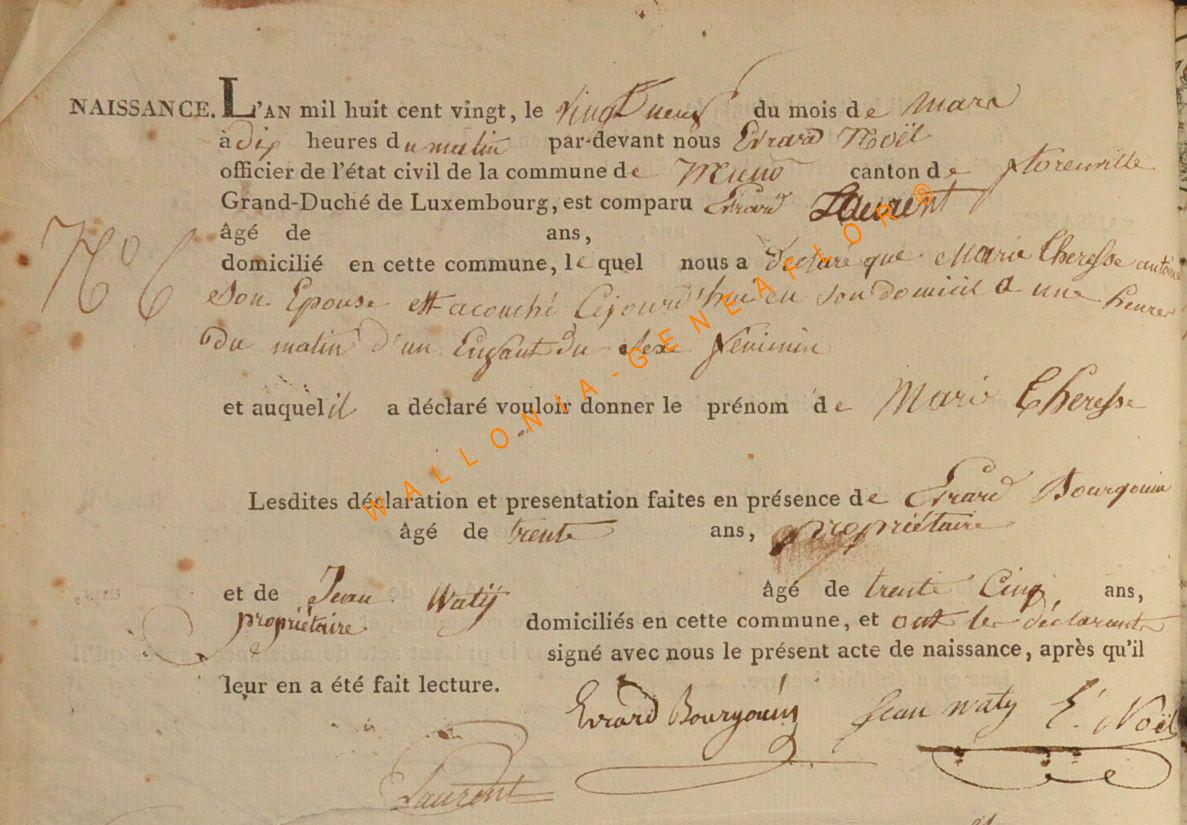 NAISSANCE. L'AN mil huit cent vingt, le vingt neuf du mois de mars
à dix heures du matin par-devant nous Evrard Noël
officier de l'état civil de la commune de Muno canton de florenville
Grand-Duché de Luxembourg, est comparu Evrard Laurent
âgé de ans,
N° 6
domicilié en cette commune, le quel nous a déclaré que Marie Theresse antoine
Son Epouse est acouché Cejourd'hui en son domicil a une heure
Du matin d'un Enfant du sexe féminin
et auquel il a déclaré vouloir donner le prénom de Marie Theresse
Lesdites déclaration et presentation faites en présence de Evrard Bourgouin
âgé de trente ans, propriétaire
et de Jean Waty âgé de trente Cinq ans,
propriétaire domiciliés en cette commune, et ont les déclarants
signé avec nous le présent acte de naissance, après qu'il
leur en a été fait lecture.
Evrard Bourgouin Jean waty E. Noël
Laurent
WALLONIA-GENEAFLOR®